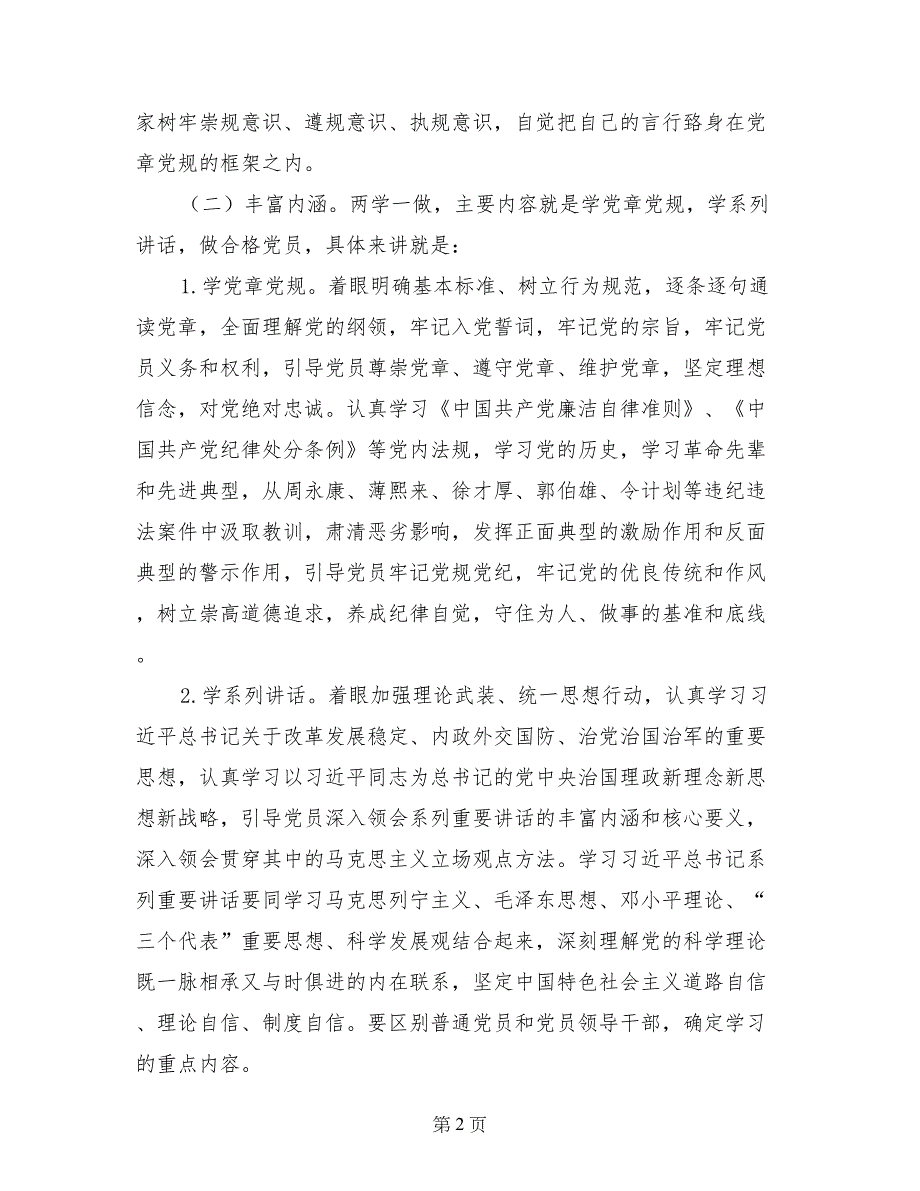 家树牢崇规意识、遵规意识、执规意识，自觉把自己的言行臵身在党
章党规的框架之内。
（二）丰富内涵。两学一做，主要内容就是学党章党规，学系列
讲话，做合格党员，具体来讲就是：
1.学党章党规。着眼明确基本标准、树立行为规范，逐条逐句通
读党章，全面理解党的纲领，牢记入党誓词，牢记党的宗旨，牢记党
员义务和权利，引导党员尊崇党章、遵守党章、维护党章，坚定理想
信念，对党绝对忠诚。认真学习《中国共产党廉洁自律准则》、《中
国共产党纪律处分条例》等党内法规，学习党的历史，学习革命先辈
和先进典型，从周永康、薄熙来、徐才厚、郭伯雄、令计划等违纪违
法案件中汲取教训，肃清恶劣影响，发挥正面典型的激励作用和反面
典型的警示作用，引导党员牢记党规党纪，牢记党的优良传统和作风
，树立崇高道德追求，养成纪律自觉，守住为人、做事的基准和底线
。
2.学系列讲话。着眼加强理论武装、统一思想行动，认真学习习
近平总书记关于改革发展稳定、内政外交国防、治党治国治军的重要
思想，认真学习以习近平同志为总书记的党中央治国理政新理念新思
想新战略，引导党员深入领会系列重要讲话的丰富内涵和核心要义，
深入领会贯穿其中的马克思主义立场观点方法。学习习近平总书记系
列重要讲话要同学习马克思列宁主义、毛泽东思想、邓小平理论、“
三个代表”重要思想、科学发展观结合起来，深刻理解党的科学理论
既一脉相承又与时俱进的内在联系，坚定中国特色社会主义道路自信
、理论自信、制度自信。要区别普通党员和党员领导干部，确定学习
的重点内容。
第 2 页